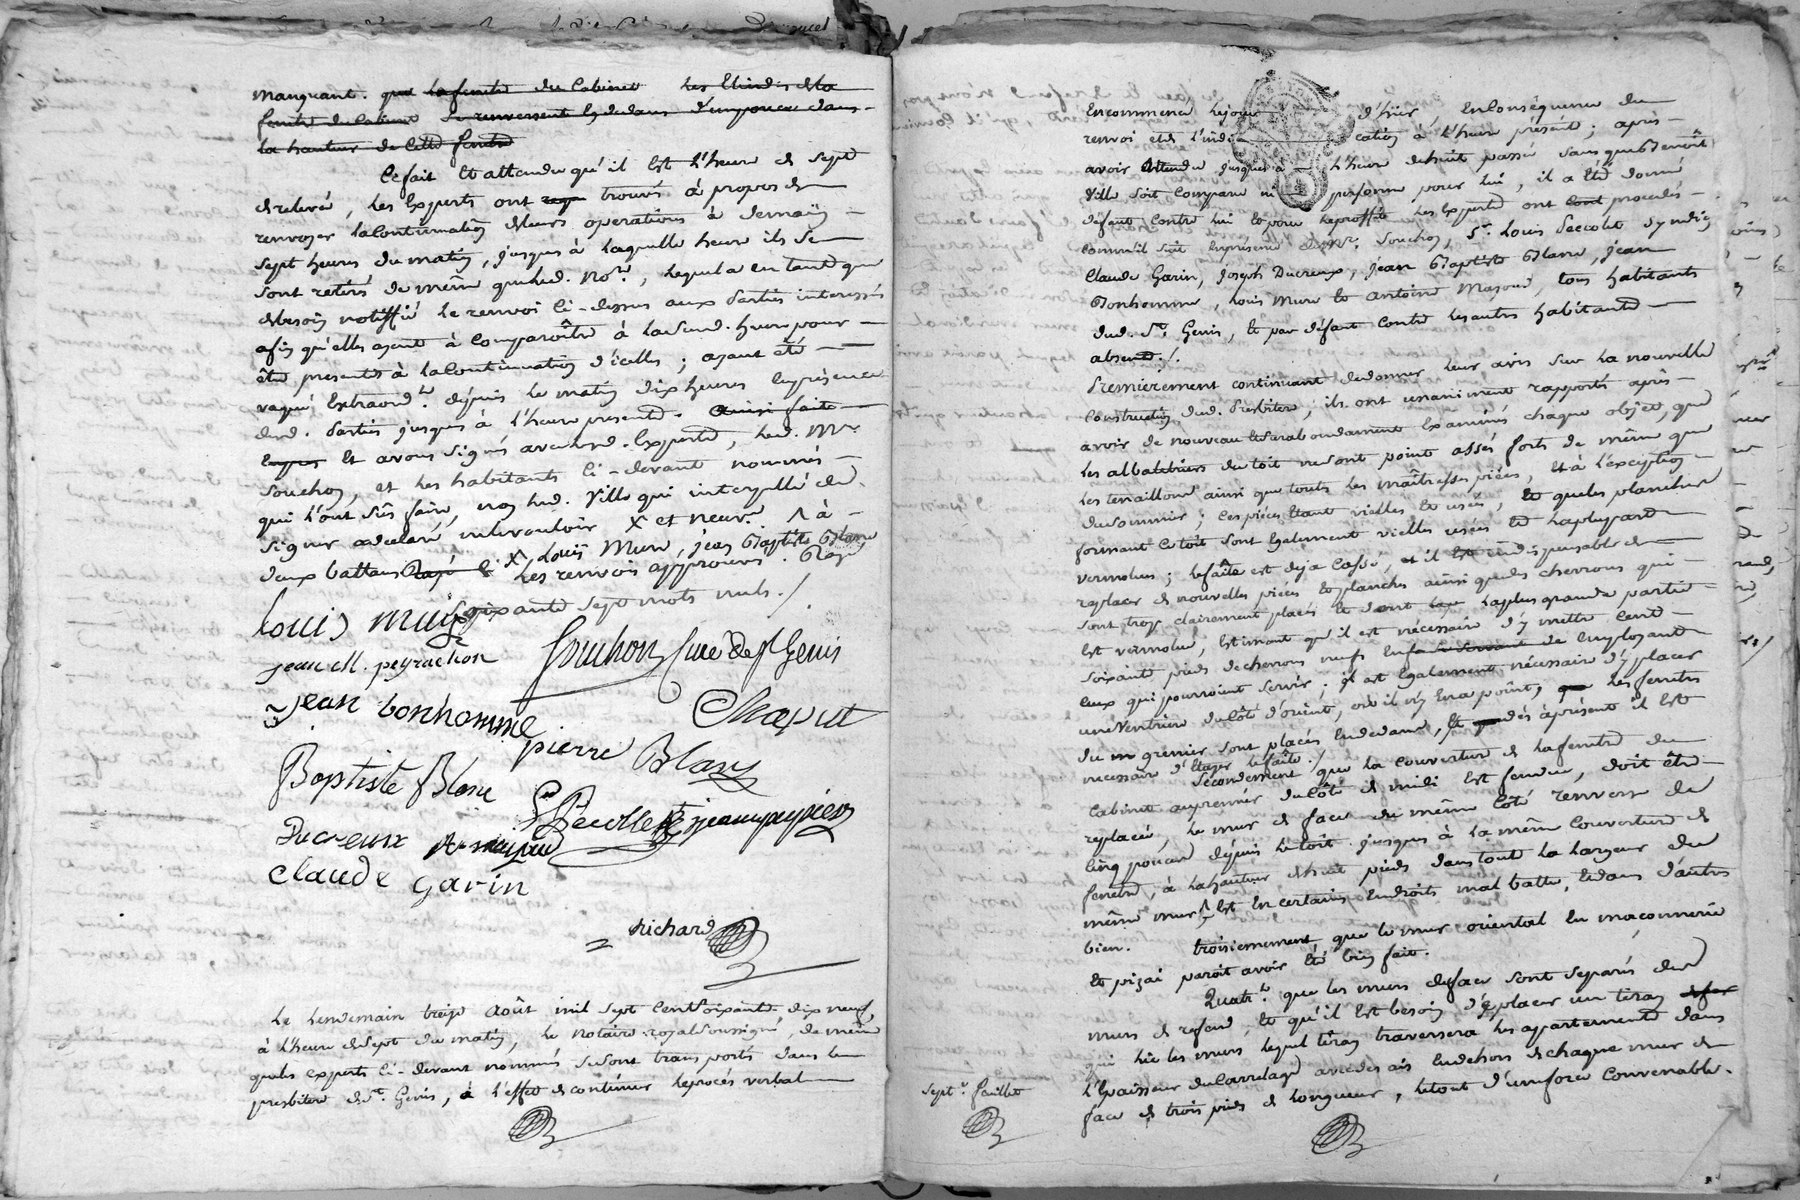 manquant. que la fenetre du Cabinet les
fenetre du Cabinet se renversent en dedans d'un pouce dans
la hauteur de cette fenetre
Ce fait et attendu qu'il est l'heure de sept
de relevé, les Experts ont trouvé à propos de
renvoyer la Continuation de leurs operations à demain
sept heures du matin, jusques à laquelle heure ils se
sont retirés de même que led. No.re, lequel a en tant que
de besoin notiffié le renvoi Ci-dessus aux Parties interessés
afin qu'elles ayent à Comparoître à la susd. heure pour
être presentes à la Continuation d'icelles; ayant été
vaqué Extraord.t depuis le matin dix heures En presence
desd. Parties jusques à l'heure presente. Ainsi faite
Et avons signés avec lesd. Experts, led. M.re
Souchon, et les habitants Ci-devant nommés
qui l'ont sûs faire, non led. Ville qui interpellé de
signer a declaré ne le vouloir X et neuv.e
deux battans Rayé X Louis Mure, jean Baptiste Blanc
les renvois approuvés. Rayé
Soixante sept mots nuls./.
Louis mure
jean M. peyrachon Souchon Curé de St Genis
jean bonhomme Chaput
pierre Blanc
Baptiste Blanc
L Pecollet jean peyrieux
Ducreux A. majour
Claude Garin
Richard
Le Lendemain treize Août mil sept Cent Soixante dix neuf,
à l'heure de sept du matin, le Notaire royal Soussigné, de même
que les experts Ci-devant nommés se sont transportés dans le
presbitere de St. Genis, à l'effet de continuer le procès verbal
Encommencé le jour d'hier En Conséquence du
renvoi et de l'indication à l'heure présente; après
avoir attendu jusques à l'heure de huit passée sans que Benoit
Ville soit Comparu ni personne pour lui, il a été donné
défaut Contre lui et pour le proffit les Experts ont procedés
comme il suit En presence dud. M.re Souchon, S.r Louis Pecolet Syndic,
Claude Garin, Joseph Ducreux, jean Baptiste Blanc, jean
Bonhomme, Louis Mure et Antoine Majour, tous habitants
dud. St. Genis, et par défaut Contre les autres habitants
absents./.
Premièrement continuant de donner leur avis sur la nouvelle
Construction dud. Presbitere, ils ont unanimement rapportés après
avoir de nouveau et surabondamment Examinés chaque objet, que
les albaletriers du toit ne sont point assés forts de même que
les tenaillons ainsi que toutes les maîtresses pièces, et à l'exception
du sommier; ces pièces étant vielles et usées, et que les planches
formant le toit sont Egalement vielles usées et la plupart
vermolues; le faîte est deja Cassé, et il est indispensable de
replacer de nouvelles pièces et planches ainsi que des chevrons qui
sont trop clairement placés et dont la plus grande partie
est vermolue, Estimant qu'il est nécessaire d'y mettre Cent
soixante pieds de chevrons neufs En Employant
ceux qui pourroient servir; il est Egalement nécessaire d'y placer
une Ventriere du Côté d'orient, où il n'y En a point, que les fenetres
du grenier sont placés En dedans, et que dès àprésent il est
necessaire d'étayer le faîte./.
Secondement que la couverture de la fenetre du
Cabinet au premier du Côté de midi est fendue, doit être
replacée, le mur de face du même Côté renverse de
Cinq pouces depuis le toit jusques à la même Couverture de
fenetre, à la hauteur de huit pieds dans tout la largeur du
même mur, Est En certains Endroits mal battu, Et dans d'autres
bien. troisiemement que le mur oriental En maconnerie
et pizai paroit avoir été bien fait.
Quatr.t que les murs de face sont separés des
murs de refend, et qu'il Est besoin d'y placer un tiran de fer
qui lie les murs lequel tiran traversera les appartements dans
l'Epaisseur du Carrelage avec des ais En dehors de chaque mur de
face de trois pieds de longueur, le tout d'une force Convenable.
Sept.e feuillet